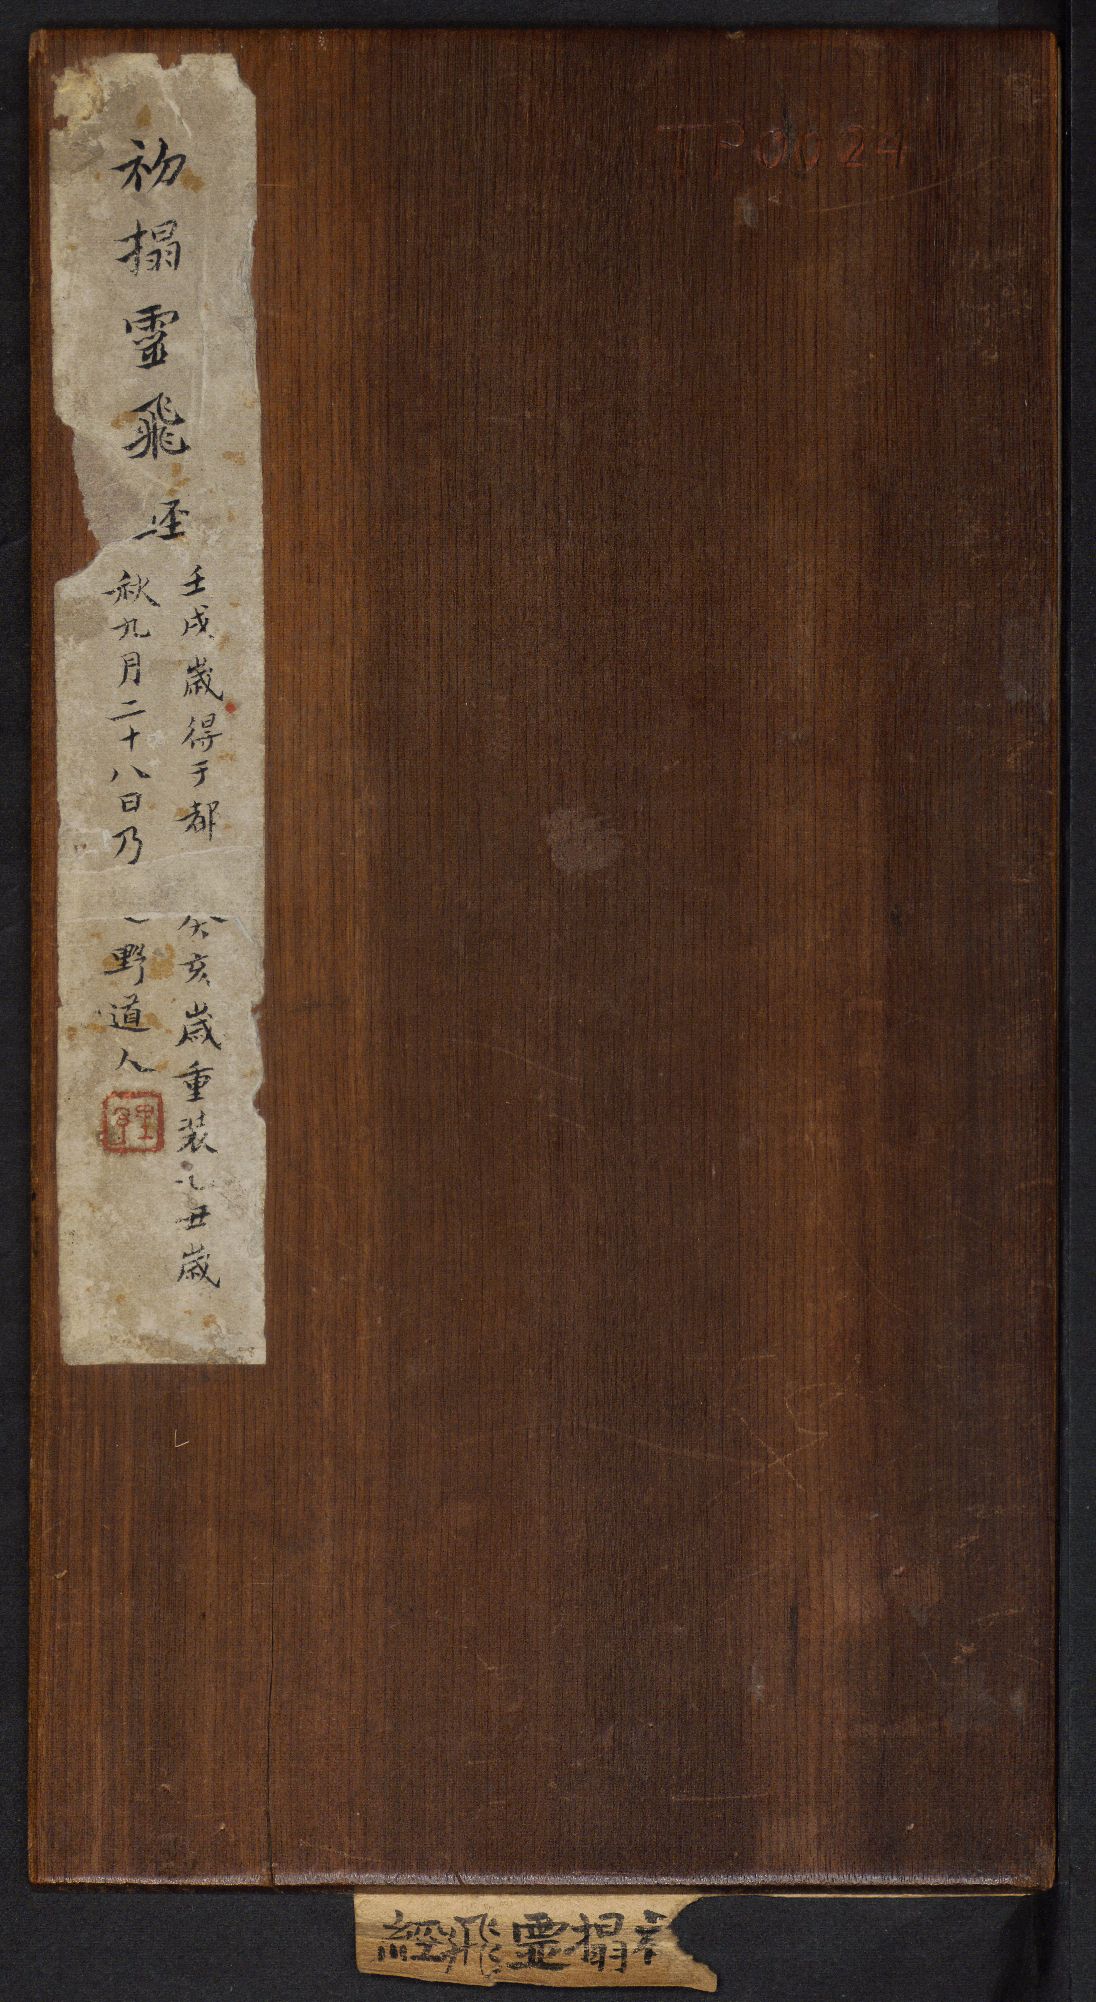 初搨霊飛经
壬戌歲得于都
秋九月二十八日乃
癸亥歲重装乙丑歲
野道人
TP0024
經飛霊搨初